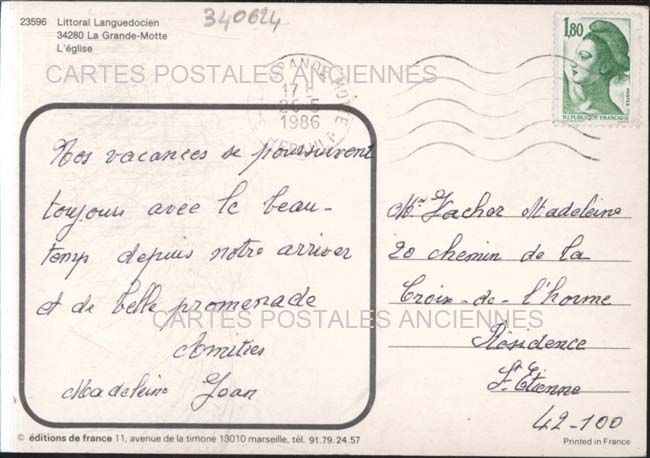 23596 Littoral Languedocien
34280 La Grande-Motte
L'église
340624
CARTES POSTALES ANCIENNES
17 H
26-5
1986
1,80
POSTES
REPUBLIQUE FRANCAISE
Nos vacances se poursuivent
toujours avec le beau-
temp depuis notre arriver
et de belle promenade
Amitiés
Madeleine Jean
Madeleine
20 chemin de la
Croix-de-l'horme
Résidence
St Etienne
42-100
CARTES POSTALES ANCIENNES
© éditions de france 11, avenue de la timone 13010 marseille, tél. 91.79.24.57
Printed in France